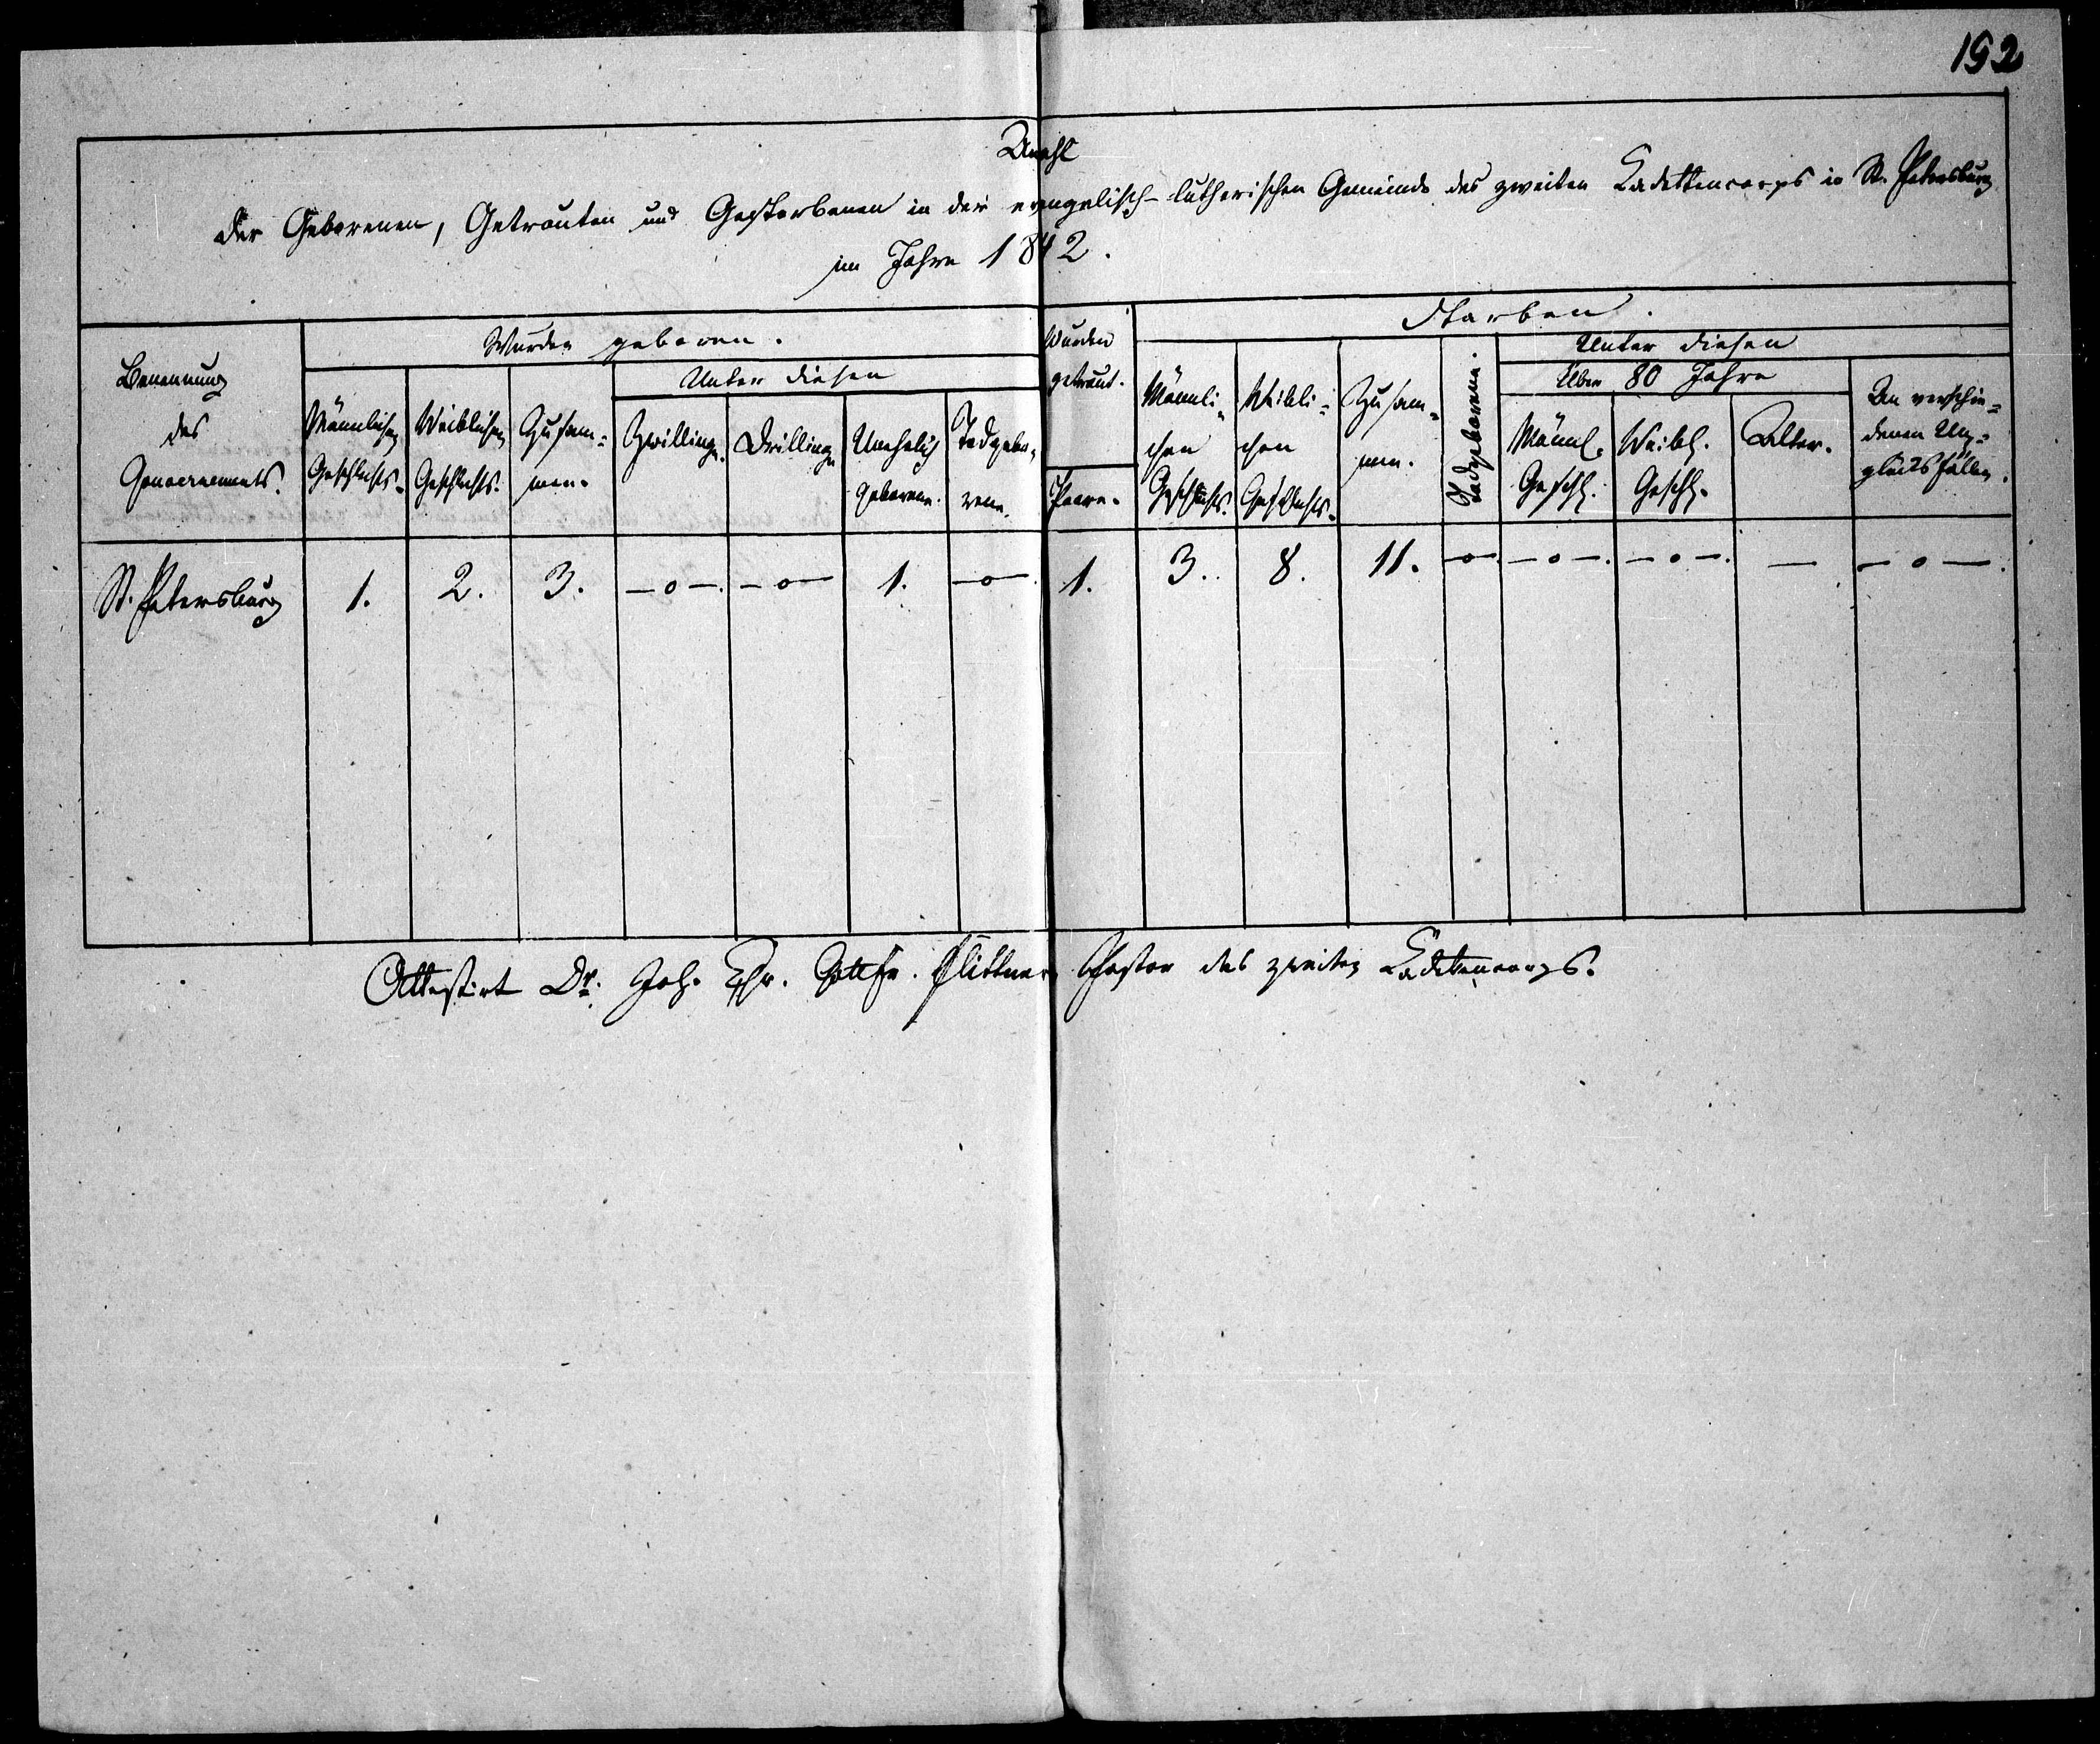 192
Anzahl
der Geborenen, Getrauten und Gestorbenen in der evangelisch-lutherischen Gemeinde des zweiten Cadettencorps in St. Petersburg
im Jahre 1842.
Benennung
des
Gouvernements.
Wurden geboren.
Männlichen
Geschlechts.
Weiblichen
Geschlechts.
Zusam=
men.
Unter diesen
Zwillinge.
Drillinge
Unehelich
geborene.
Todgebo=
rene.
Wurden
getraut.
Paare.
Starben.
Männli=
chen
Geschlechts.
Weibli=
chen
Geschlechts.
Zusam=
men.
Todgeborene.
Unter diesen
Über 80 Jahre
Männl.
Geschl.
Weibl.
Geschl.
Alter.
An verschie=
denen Un=
glücksfällen.
St. Petersburg 1. 2. 3. —o—. —o— 1. —o— 1. 3. 8. 11. —o—. —o—. —o—. — —o—.
Attestirt Dr. Joh. Chr. Gottfr. Flittner Pastor des zweiten Cadettencorps.